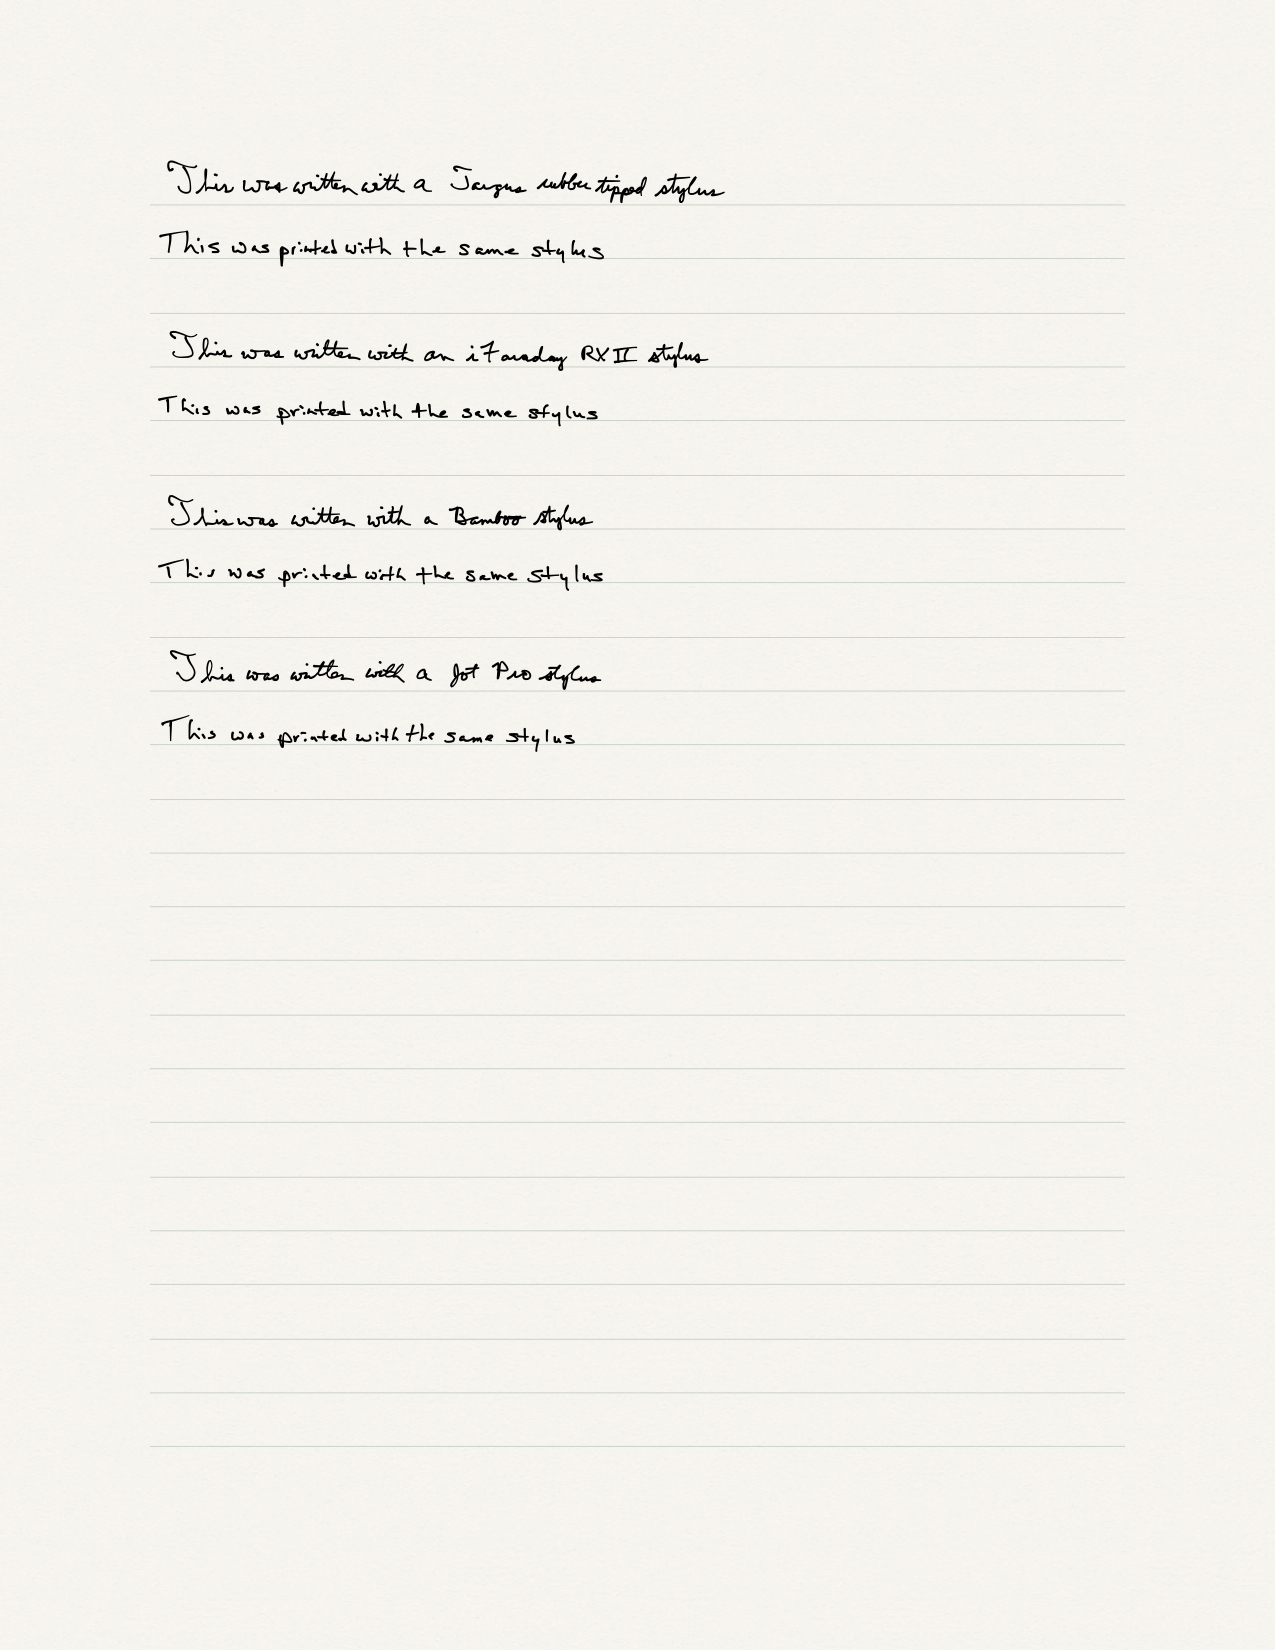 This was written with a Targus rubber tipped stylus
This was printed with the same stylus
This was written with an iFaraday RX II stylus
This was printed with the same stylus
This was written with a Bamboo stylus
This was printed with the same stylus
This was written with a Jot Pro stylus
This was printed with the same stylus